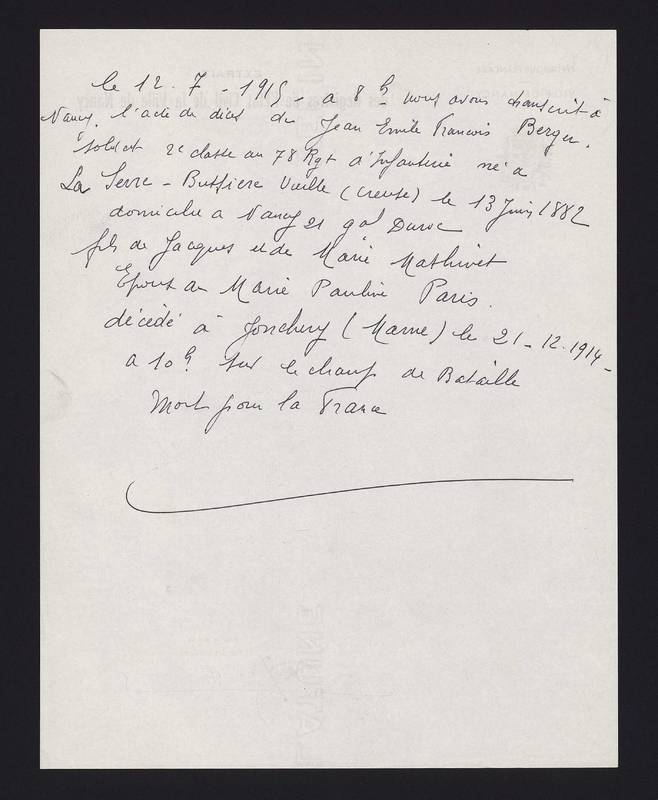 le 12. 7 - 1915 - a 8h nous avons transcrit à
Nancy, l'acte de décès de Jean Emile Francois Berger.
soldat 2e classe au 78 Rgt d'Infanterie né a
La Serre - Bussiere Vieille (Creuse) le 13 Juin 1882
domicilié a Nancy 21 gal Duroc
fils de Jacques et de Marie Mathivet
Epoux de Marie Pauline Paris.
décédé à Jonchery (Marne) le 21-12.1914-
a 10h sur le champ de Bataille
Mort pour la France